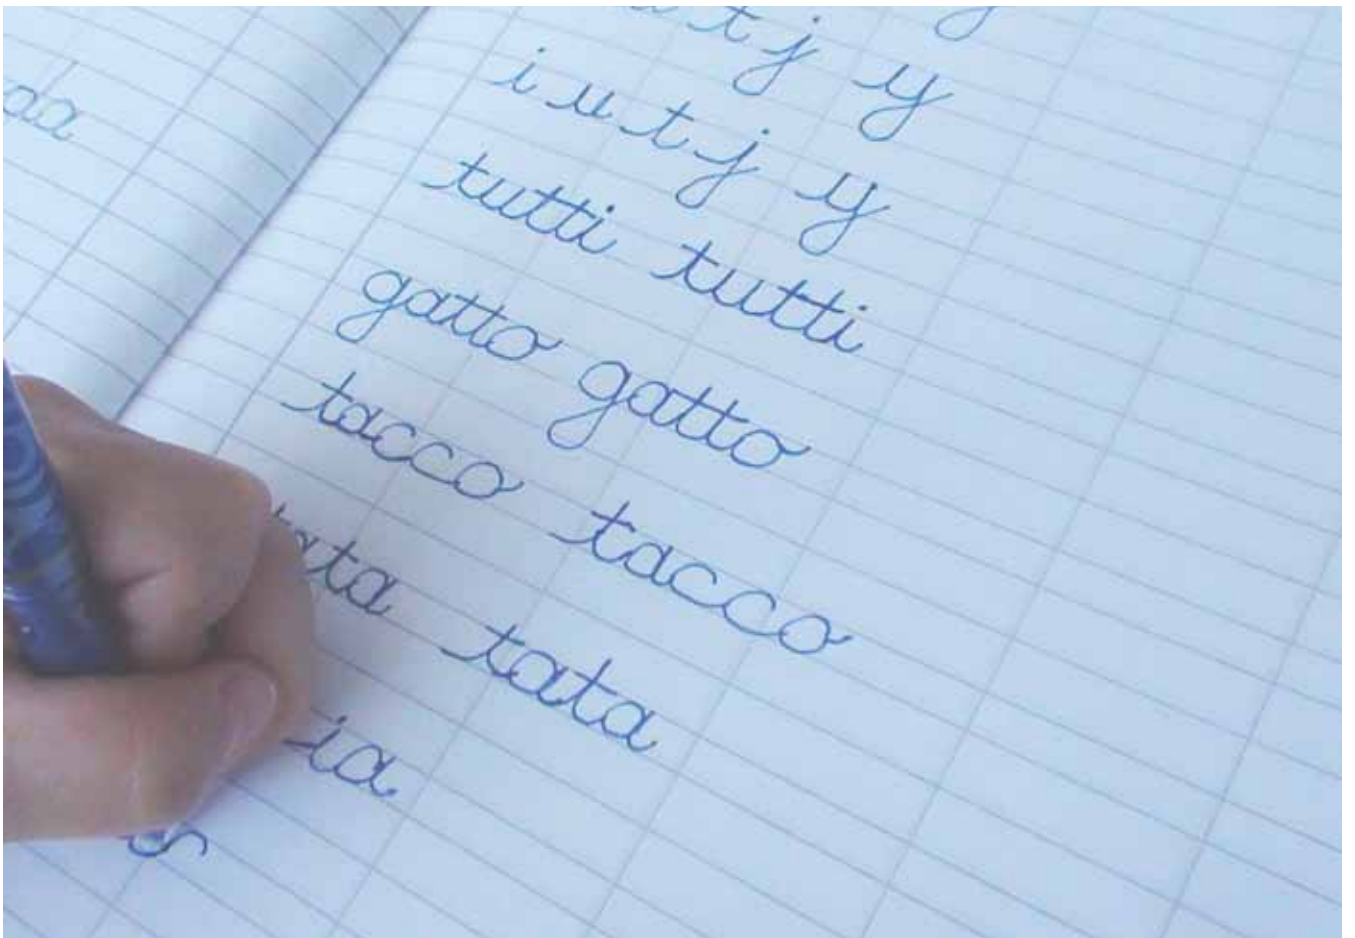 aa
u t j y
i u t j y
tutti tutti
gatto gatto
tacco tacco
tata